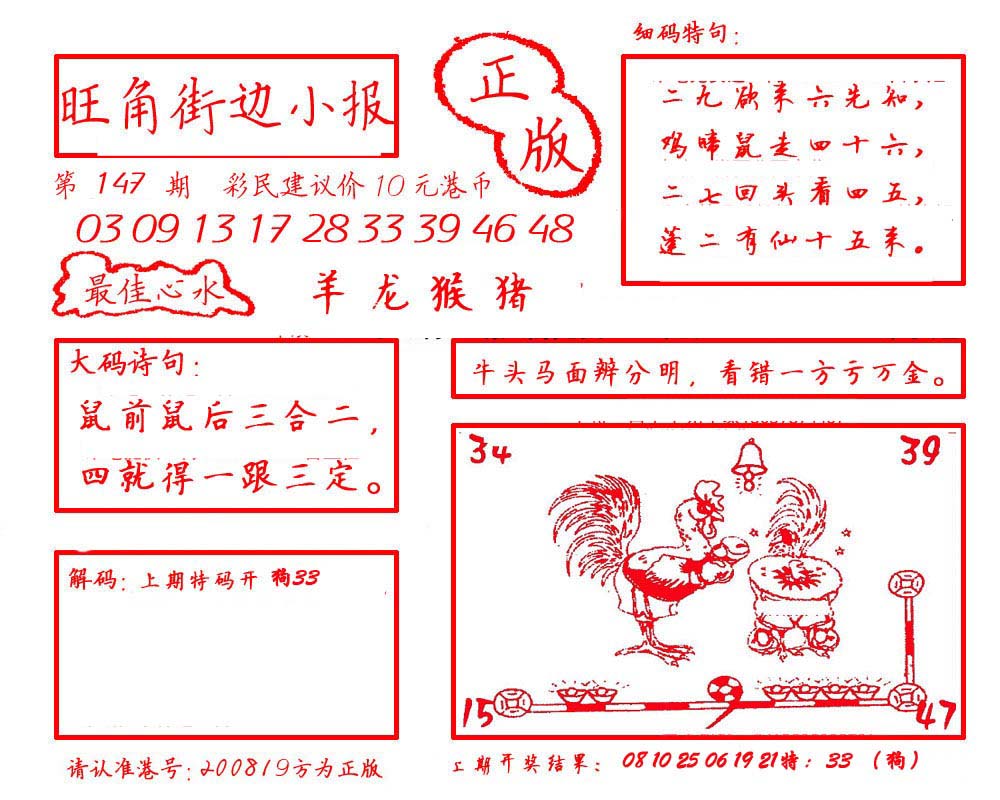 细码特句：
旺角街边小报
正版
二九欲来六先知，
鸡啼鼠走四十六，
二七回头看四五，
蓬二有仙十五来。
第 147 期 彩民建议价 10 元港币
03 09 13 17 28 33 39 46 48
最佳心水 羊龙猴猪
大码诗句：
鼠前鼠后三合二，
四就得一跟三定。
牛头马面辨分明，看错一方亏万金。
34 39
15 47
解码：上期特码开 狗33
请认准港号：200819方为正版
上期开奖结果：08 10 25 06 19 21特：33（狗）